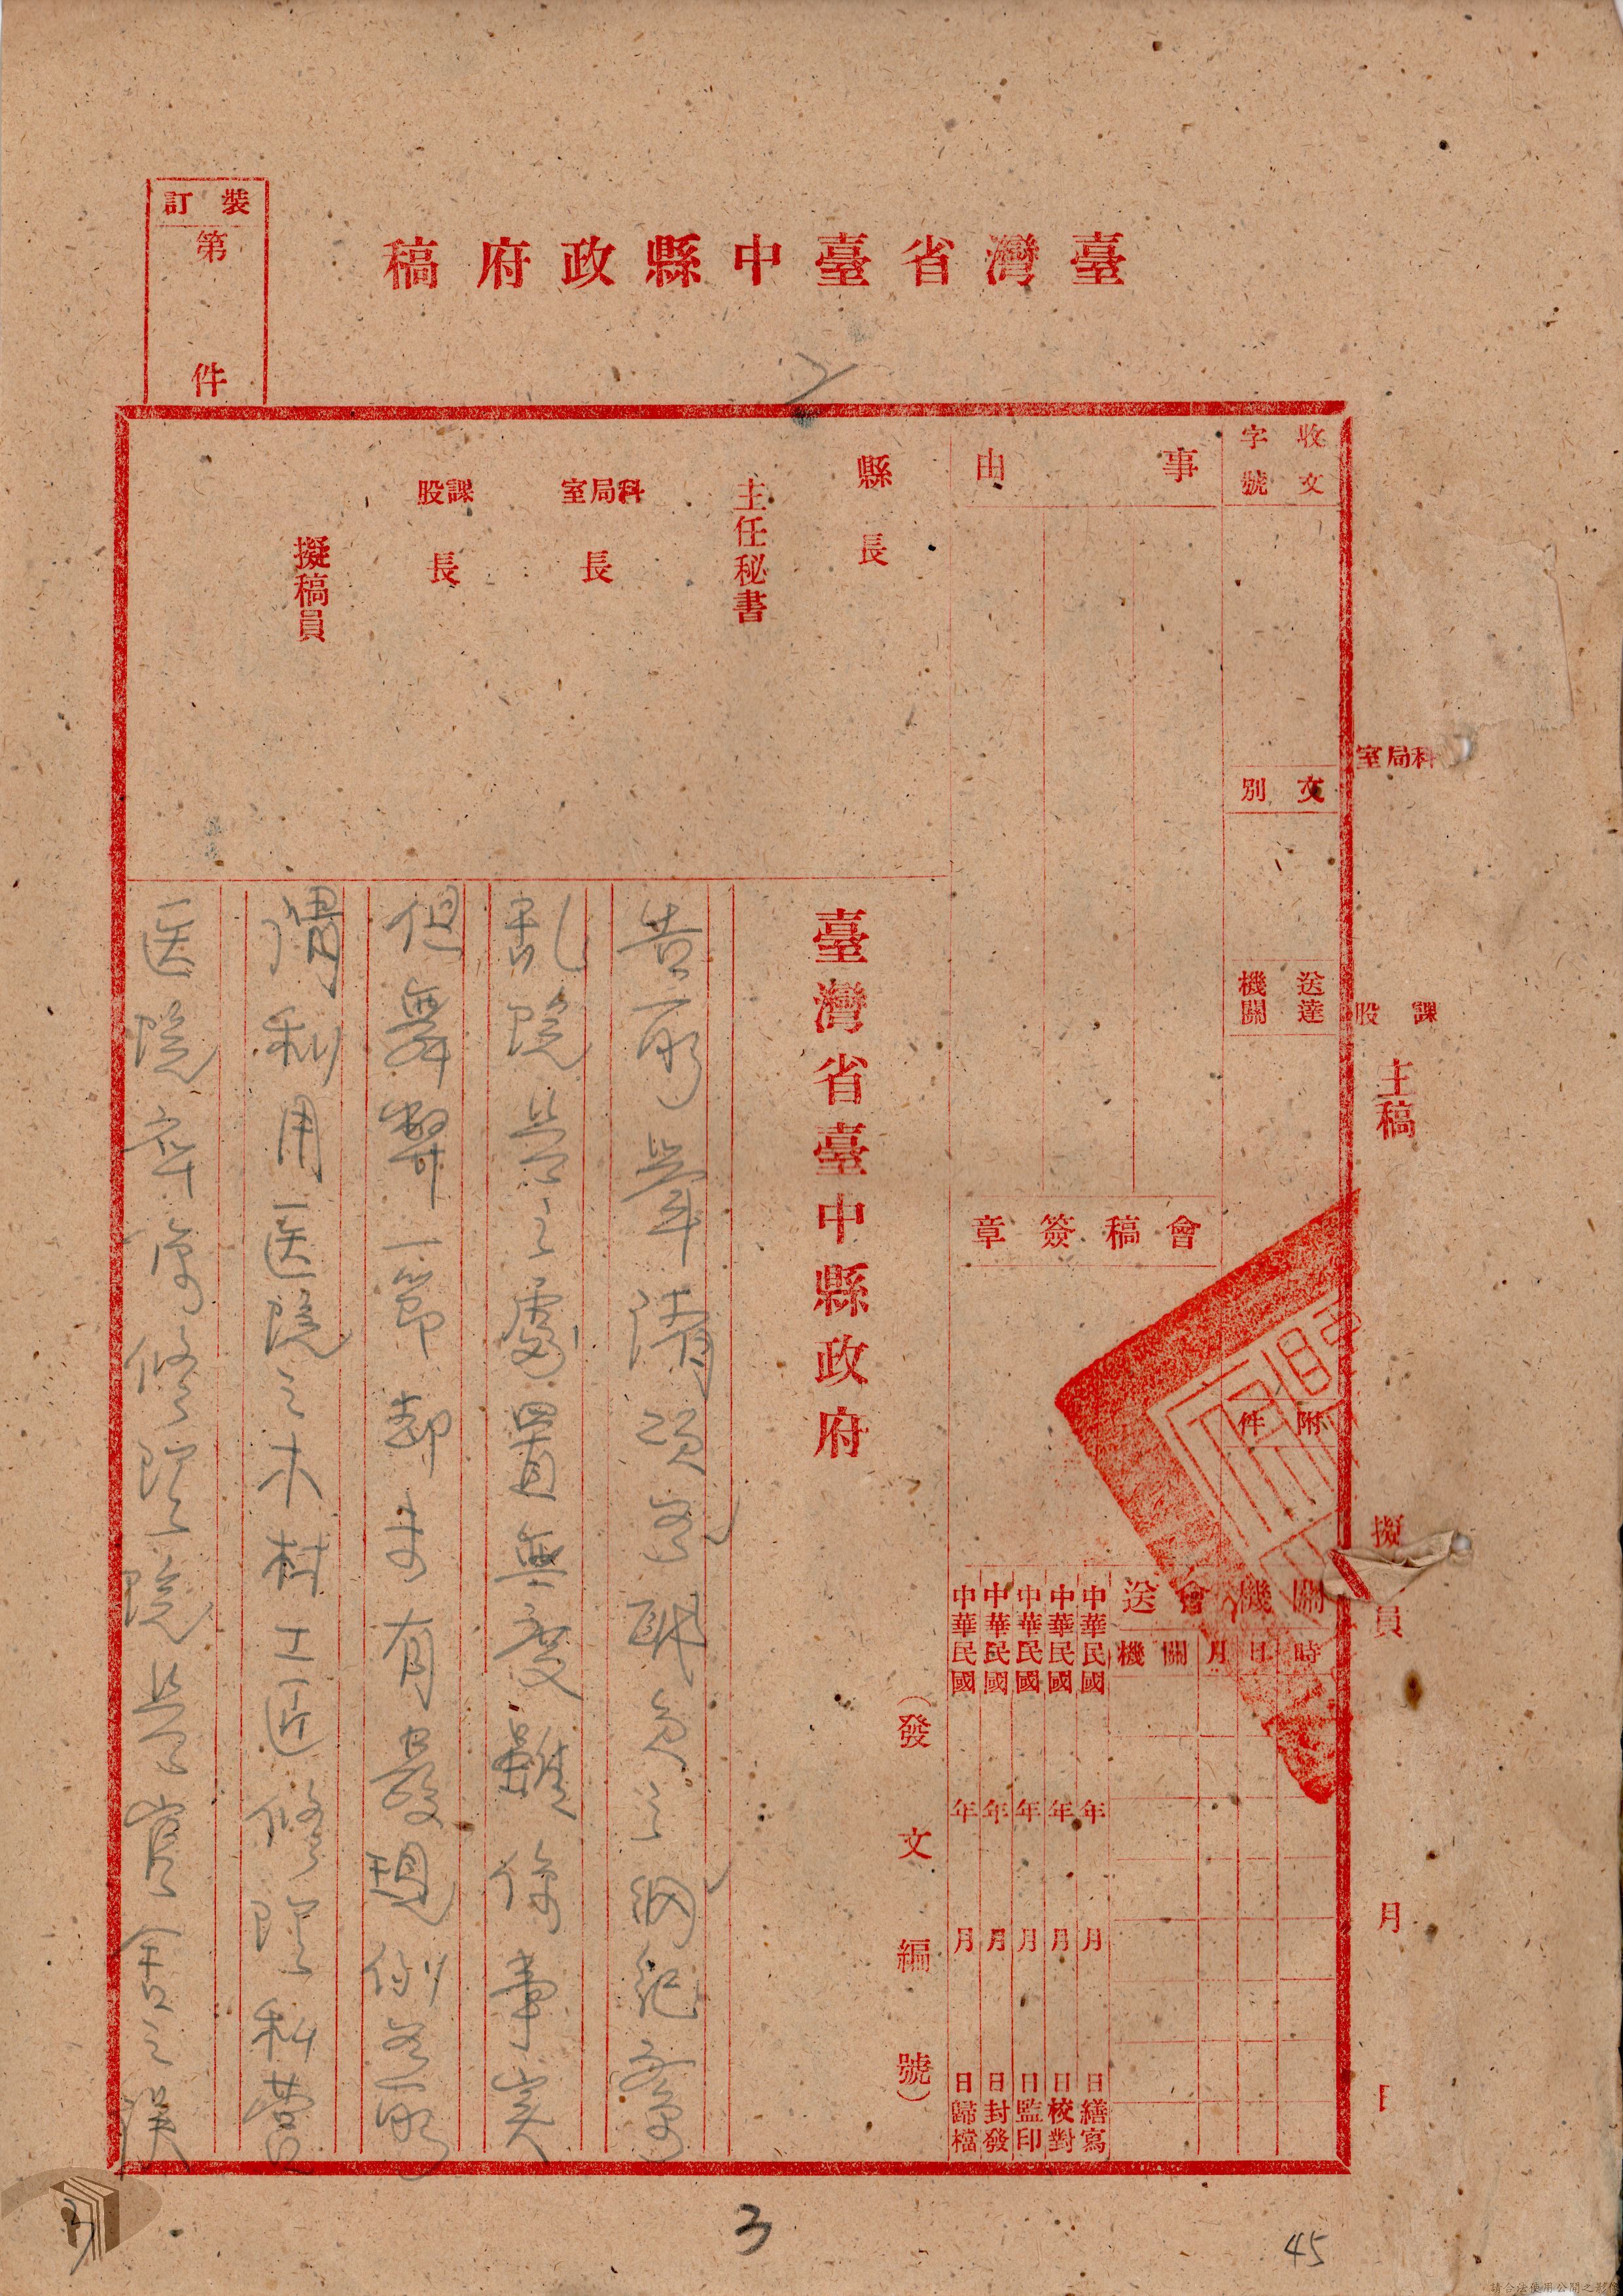 臺灣省臺中縣政府稿
裝訂
第
件
收文
字號
文別
送達
機關
附件
事由
縣長
主任秘書
科局室
長
課股
長
擬稿員
會稿簽章
關機會送
時日月關機
中華民國 年 月 日繕寫
中華民國 年 月 日校對
中華民國 年 月 日監印
中華民國 年 月 日封發
中華民國 年 月 日歸檔
(發文編號)
科局室
課股
主稿
擬 員
月
日
臺灣省臺中縣政府
告所舉情項 之綱紀
亂院長之處置無度雖係事實
但舞弊一節卻未有發現例如所
謂利用医院之木材工匠修理私營
医院 修理院長官舍之誤
3
45
請合法使用公開之影